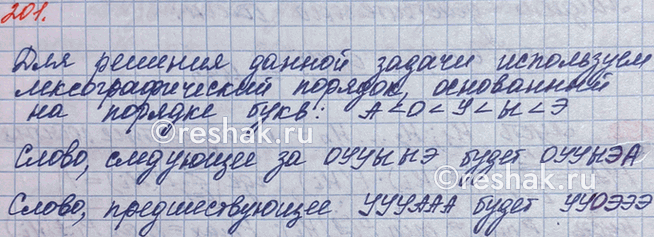 201.
Для решения данной задачи используем
лексографический порядок, основанный
на порядке букв: А<О<У<Ы<Э
©reshak.ru
Слово, следующее за ОУУЫЫЭ будет ОУУЫЭА
©reshak.ru
Слово, предшествующее УУУААА будет УУОЭЭЭ